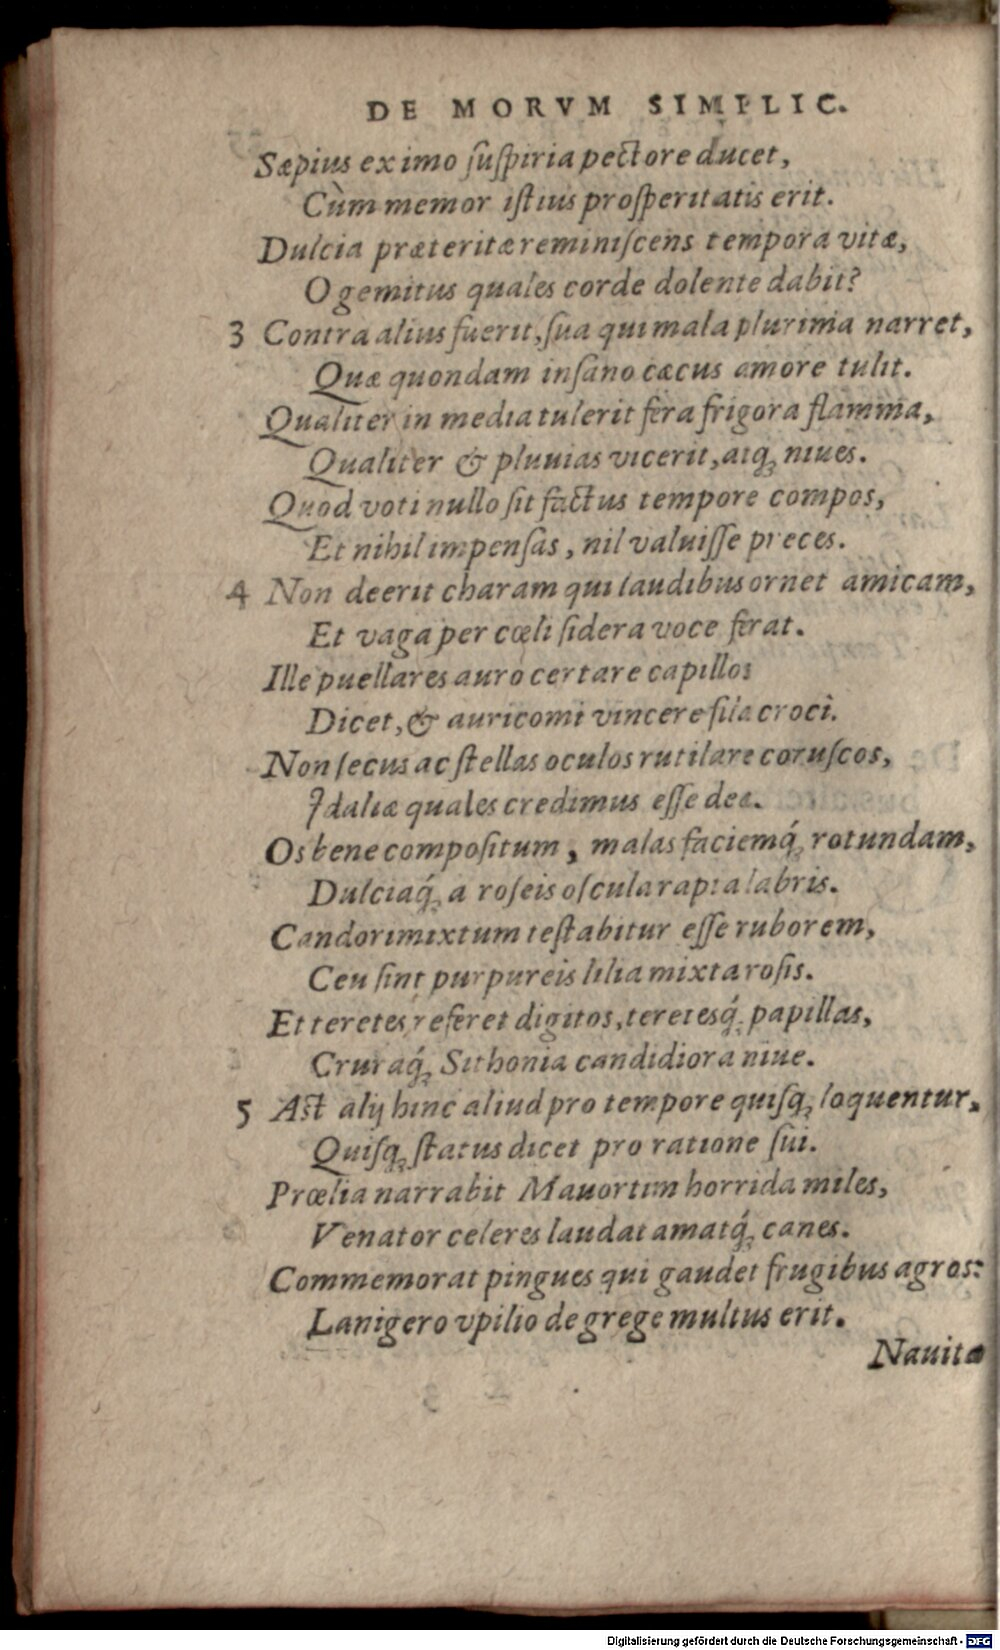 DE MORVM SIMPLIC.
Sæpius ex imo ſuſpiria pectore ducet,
Cùm memor iſtius proſperitatis erit.
Dulcia præteritæ reminiſcens tempora vitæ,
O gemitus quales corde dolente dabit?
3 Contra alius fuerit, ſua qui mala plurima narret,
Quæ quondam inſano cæcus amore tulit.
Qualiter in media tulerit fera frigora flamma,
Qualiter & pluuias vicerit, atq; niues.
Quod voti nullo ſit factus tempore compos,
Et nihil impenſas, nil valuiſſe preces.
4 Non deerit charam qui laudibus ornet amicam,
Et vaga per cœli ſidera voce ferat.
Ille puellares auro certare capillos
Dicet, & auricomi vincere fila croci.
Non ſecus ac ſtellas oculos rutilare coruſcos,
Idaliæ quales credimus eſſe deæ.
Os bene compoſitum, malas faciemq́; rotundam,
Dulciaq́; a roſeis oſcula rapta labris.
Candori mixtum teſtabitur eſſe ruborem,
Ceu ſint purpureis lilia mixta roſis.
Et teretes referet digitos, teretesq́; papillas,
Cruraq́; Sithonia candidiora niue.
5 Aſt alij hinc aliud pro tempore quiſq; loquentur,
Quiſq; ſtatus dicet pro ratione ſui.
Prœlia narrabit Mauortim horrida miles,
Venator celeres laudat amatq́; canes.
Commemorat pingues qui gaudet frugibus agros:
Lanigero vpilio de grege multus erit.
Nauita
Digitalisierung gefördert durch die Deutsche Forschungsgemeinschaft - DFG